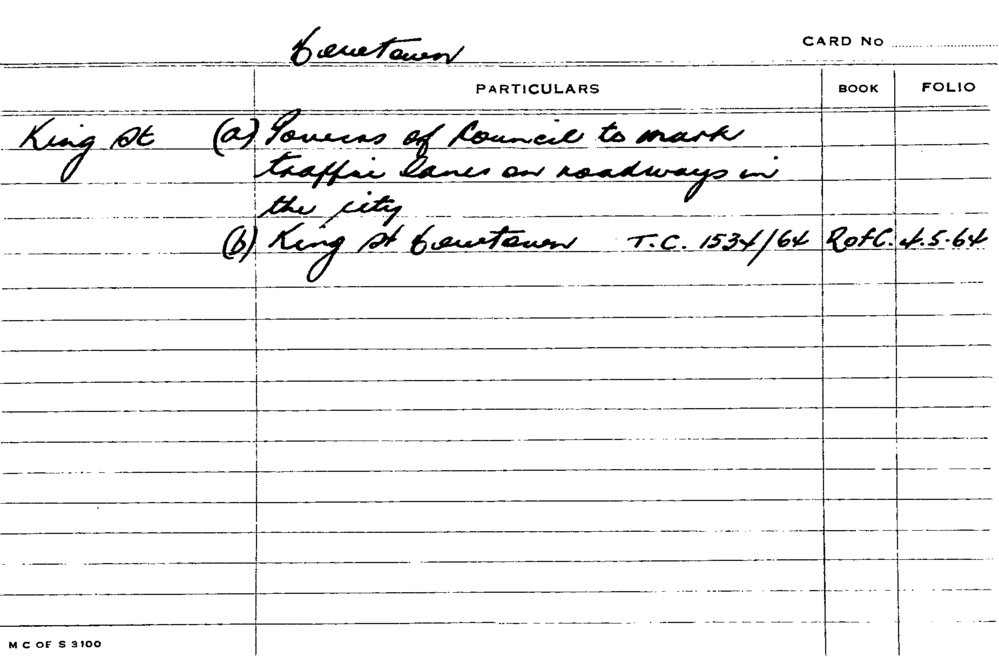 Newtown
CARD No
PARTICULARS BOOK FOLIO
King St (a) Powers of Council to mark
traffic lanes on roadways in
the city
(b) King St Newtown T.C. 1534/64 RofC. 4.5.64
M C OF S 3100